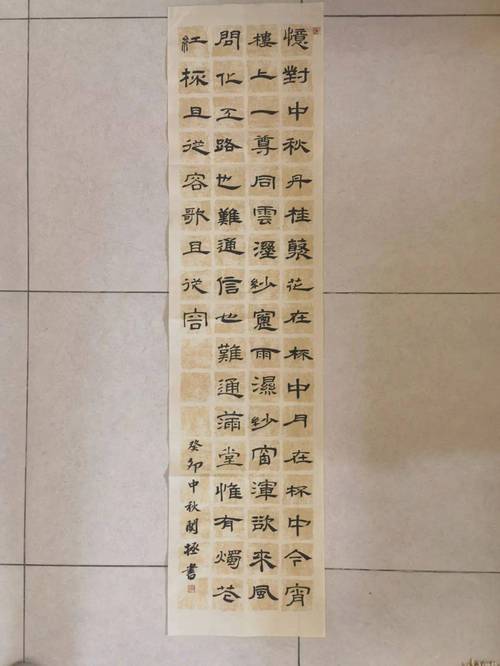 憶對中秋丹桂叢花在杯中月在杯中今宵
樓上一尊同雲溼紗窻雨濕紗窗渾欲乘風
問化工路也難通信也難通滿堂惟有燭花
紅杯且從容歌且從容
癸卯中秋書